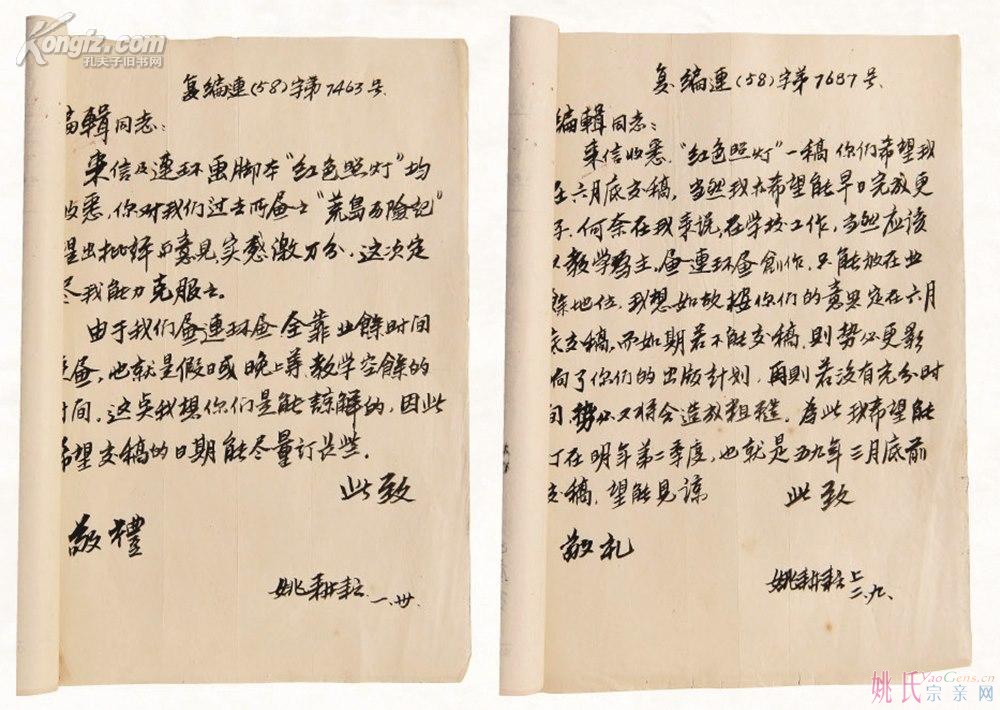 Kongfz.com
孔夫子旧书网
复编連(58)字第7463号
编輯同志：
来信及連环畫脚本“红色照灯”均
收悉，你对我们过去所画之“荒島历險記”
提出批评和意見，实感激万分．这次定
尽我能力克服之。
由于我们画連环画全靠业餘时间
画，也就是假日或晚上等教学空餘的
时间．这点我想你们是能諒解的，因此
希望交稿的日期能尽量订長些．
此致
敬禮
姚耕耘 一．卅．
复编連(58)字第7687号
编輯同志：
来信收悉，“红色照灯”一稿你们希望我
在六月底交稿，当然我亦希望能早日完成更
好．何奈在我来说，在学校工作，当然应该
以教学為主．画連环画創作，只能放在业
餘地位．我想如故按你们的意思定在六月
底交稿，而如期若不能交稿，則势必更影
响了你们的出版計划，再則若没有充分时
间，势必又将会造成粗糙．為此我希望能
订在明年第二季度，也就是五九年三月底前
交稿，望能見諒 此致
敬礼
姚耕耘上
二．九．
姚氏宗亲网
YaoGens.cn